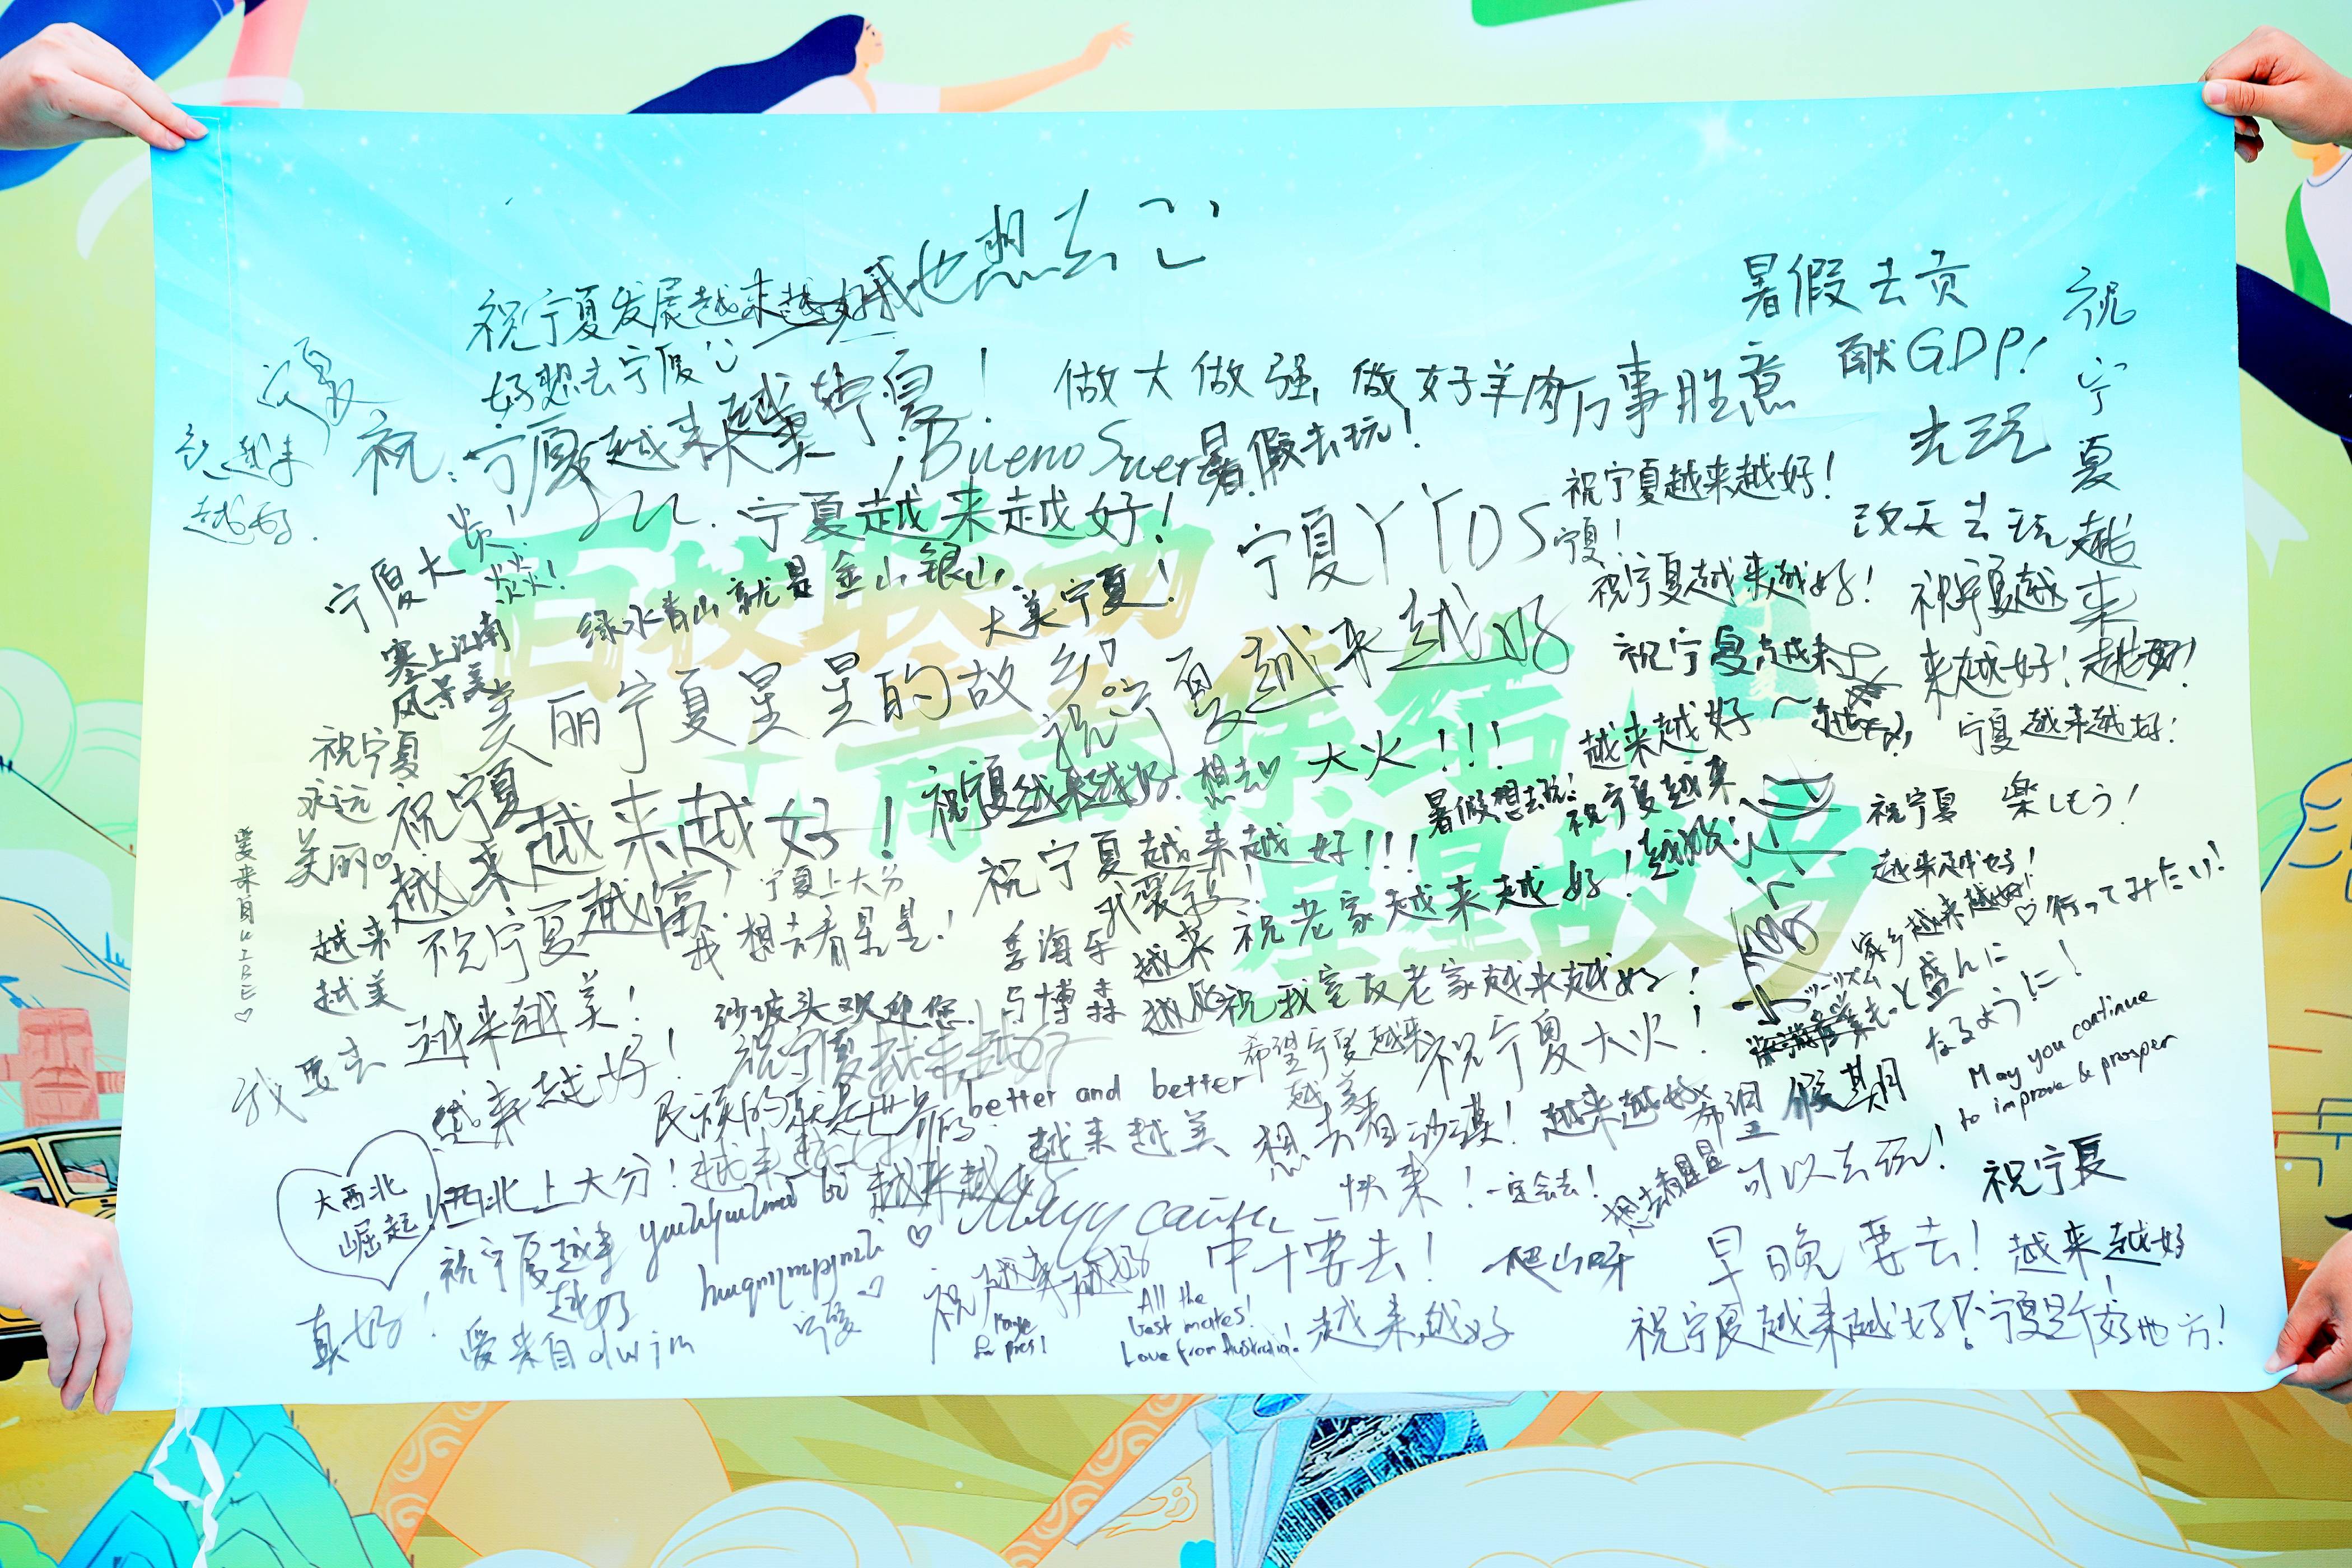 我也想去
祝宁夏发展越来越好
好想去宁夏
暑假去贡
献GDP!
祝
宁
夏
越
来
越好!
做大做强,做好羊肉
万事胜意
去玩
祝:宁夏越来越美
¡Bueno
暑假去玩!
祝宁夏越来越好!
越来
越好.
宁夏越来越好!
宁夏YYDS
宁夏!
改天去玩
宁夏大
绿水青山就是金山银山
大美宁夏!
祝宁夏越来越好!
祝宁夏越
来越好!
塞上江南
风景美
美丽宁夏星星的故乡
百校联动
青春集结
星星故乡
祝宁夏越来越好
祝宁夏越来
越来越好~
宁夏越来越好!
祝宁夏
永远
美丽♡
祝宁夏
越来越来越好!
祝宁夏越来越好.
想去♡
大火!!!
暑假想去玩!
祝宁夏越来
越好!
祝宁夏
越来越好!
楽しもう!
爱来自KIBBE♡
宁夏上大分
祝宁夏越来越好!!!
我爱宁夏!
祝老家越来越好!
家乡越来越好!
♡行ってみたい!
越来
越美
祝宁夏越富,
越来越美!
我想去看星星!
李海东
与博森
越来
越好
祝我室友老家越来越好!
ツーリズム
もっと盛んに
なるように!
沙坡头欢迎您
我要去
越来越好!
祝宁夏越来越好
希望宁夏越来
越美
祝宁夏大火!
May you continue
to improve & prosper
民族的就是世界的
better and better
越来越美
想去看沙漠!
越来越好
希望假期
可以去玩!
大西北
崛起!
西北上大分!
越来越好
越来越好
快来!
一定会去!
想去看星星
祝宁夏
越来越好
祝宁夏越来
越好
♡
中千要去!
爬山呀
早晚要去!
真好!
爱来自dwjm
宁夏
祝越来越好
All the
best mates!
Love from Australia!
越来越好
祝宁夏越来越好!
宁夏是个好地方!